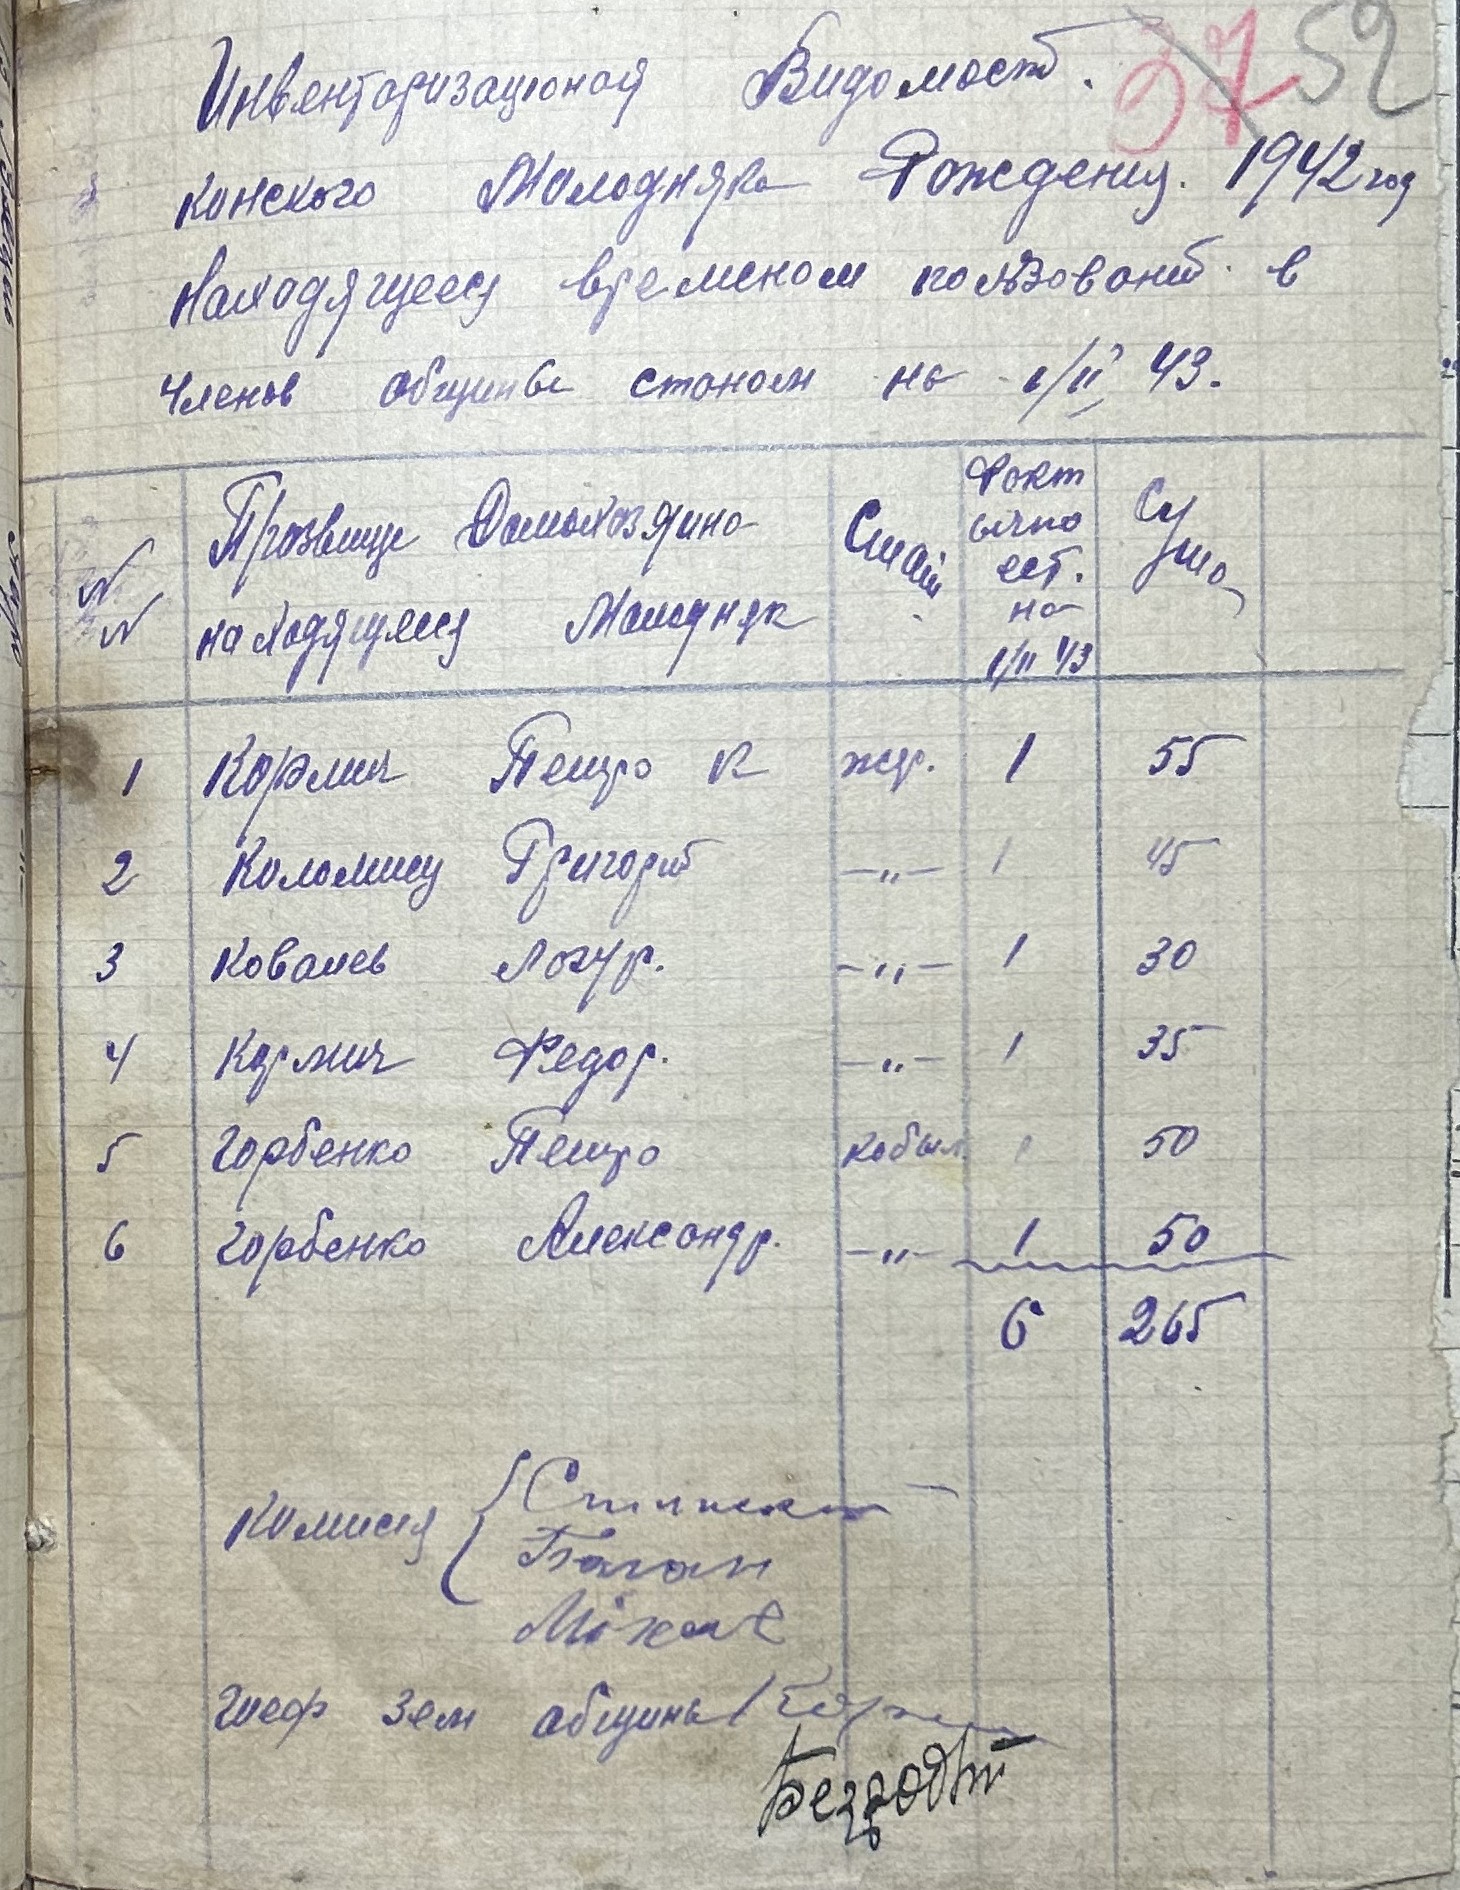 37 52
Инвентаризационая Видомость.
конского Молодняка Рождения. 1942 год
Находящееся временом пользовань в
членов общины станом на 1/II 43.
№№ Прозвище Домохозяина находящееся Молодняк Стать Фактычно ест. на 1/II 43 Сумма
1 Кормич Петро К жер. 1 55
2 Коломиец Григорий —„— 1 45
3 Ковалев Лазур. —„— 1 30
4 Кормич Федор. —„— 1 35
5 Горбенко Петро кобыл. 1 50
6 Горбенко Александр. —„— 1 50
6 265
Комисия
Баган
Шеф Зем общины